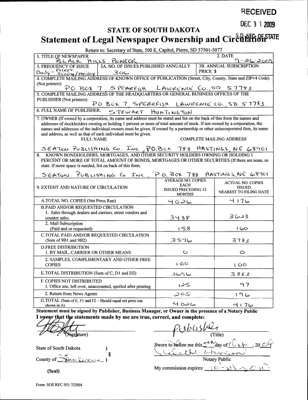 RECEIVED
DEC 11 2009
S.D. SEC. OF STATE
STATE OF SOUTH DAKOTA
Statement of Legal Newspaper Ownership and Circulation
Return to: Secretary of State, 500 E. Capitol, Pierre, SD 57501-5077
1. TITLE OF NEWSPAPER
BLACK HILLS PIONEER
2. DATE
9-26-2009
3. FREQUENCY OF ISSUE
Daily - Except Sunday/Holiday
3A. NO. OF ISSUES PUBLISHED ANNUALLY
306
3B. ANNUAL SUBSCRIPTION
PRICE $
4. COMPLETE MAILING ADDRESS OF KNOWN OFFICE OF PUBLICATION (Street, City, County, State and ZIP+4 Code)
(Not printers)
PO BOX 7 SPEARFISH LAWRENCE CO. SD 57783
5. COMPLETE MAILING ADDRESS OF THE HEADQUARTERS OF GENERAL BUSINESS OFFICES OF THE
PUBLISHER (Not printers)
PO BOX 7, SPEARFISH LAWRENCE CO, SD 57783
6. FULL NAME OF PUBLISHER:
STEWART HUNTINGTON
7. OWNER (If owned by a corporation, its name and address must be stated and list on the back of this form the names and
addresses of stockholders owning or holding 1 percent or more of total amount of stock. If not owned by a corporation, the
names and addresses of the individual owners must be given. If owned by a partnership or other unincorporated firm, its name
and address, as well as that of each individual must be given.
FULL NAME
COMPLETE MAILING ADDRESS
SEATON PUBLISHING CO. INC P.O. BOX 788 HASTINGS, NE 68901
8. KNOWN BONDHOLDERS, MORTGAGES, AND OTHER SECURITY HOLDERS OWNING OR HOLDING 1
PERCENT OR MORE OF TOTAL AMOUNT OF BONDS, MORTGAGES OR OTHER SECURITIES (If there are none, so
state. If more space is needed, list on back of this form.
SEATON PUBLISHING CO. INC, P.O. BOX 788 HASTINGS, NE 68901
9. EXTENT AND NATURE OF CIRCULATION
AVERAGE NO. COPIES
EACH
ISSUED PRECEDING 12
MONTHS
ACTUAL NO. COPIES
ISSUED
NEAREST TO FILING DATE
A. TOTAL NO. COPIES (Net Press Run)
4026
4176
B. PAID AND/OR REQUESTED CIRCULATION
1. Sales through dealers and carriers, street vendors and
counter sales.
3438
3623
2. Mail Subscription
(Paid and or requested)
158
160
C. TOTAL PAID AND/OR REQUESTED CIRCULATION
(Sum of 9B1 and 9B2)
3596
3783
D. FREE DISTRIBUTION
1. BY MAIL, CARRIER OR OTHER MEANS
0
0
2. SAMPLES, COMPLIMENTARY AND OTHER FREE
COPIES
100
100
E. TOTAL DISTRIBUTION (Sum of C, D1 and D2)
3696
3883
F. COPIES NOT DISTRIBUTED
1. Office use, left over, unaccounted, spoiled after printing
125
97
2. Return from News Agents
205
196
G. TOTAL (Sum of E, F1 and F2 - Should equal net press run
shown in A)
4026
4176
Statement must be signed by Publisher, Business Manager, or Owner in the presence of a Notary Public
I swear that the statements made by me are true, correct, and complete:
Publisher
(Signature)
(Title)
State of South Dakota )
County of Lawrence )
Sworn to before me this day of Sept, 2009
Notary Public
(Seal)
My commission expires:
Form: SOS REC 051 7/2004